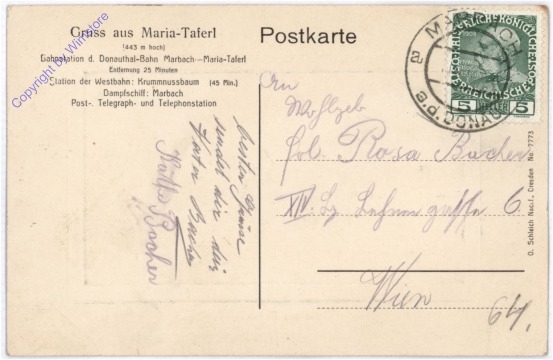 Gruss aus Maria-Taferl
(443 m hoch)
Bahnstation d. Donauthal-Bahn Marbach—Maria-Taferl
Entfernung 25 Minuten
Station der Westbahn: Krummnussbaum (45 Min.)
Dampfschiff: Marbach
Post-, Telegraph- und Telephonstation
Postkarte
MARBACH
a.d. DONAU
5 HELLER 5
An
Wohlgeb
Frl. Rosa Bacher
XIV. Bz 6
Wien
64.
besten Grüsse
sendet dir die
Bacher
Käthe Bacher
O. Schleich Nachf., Dresden No 7773
Copyright by Winstore